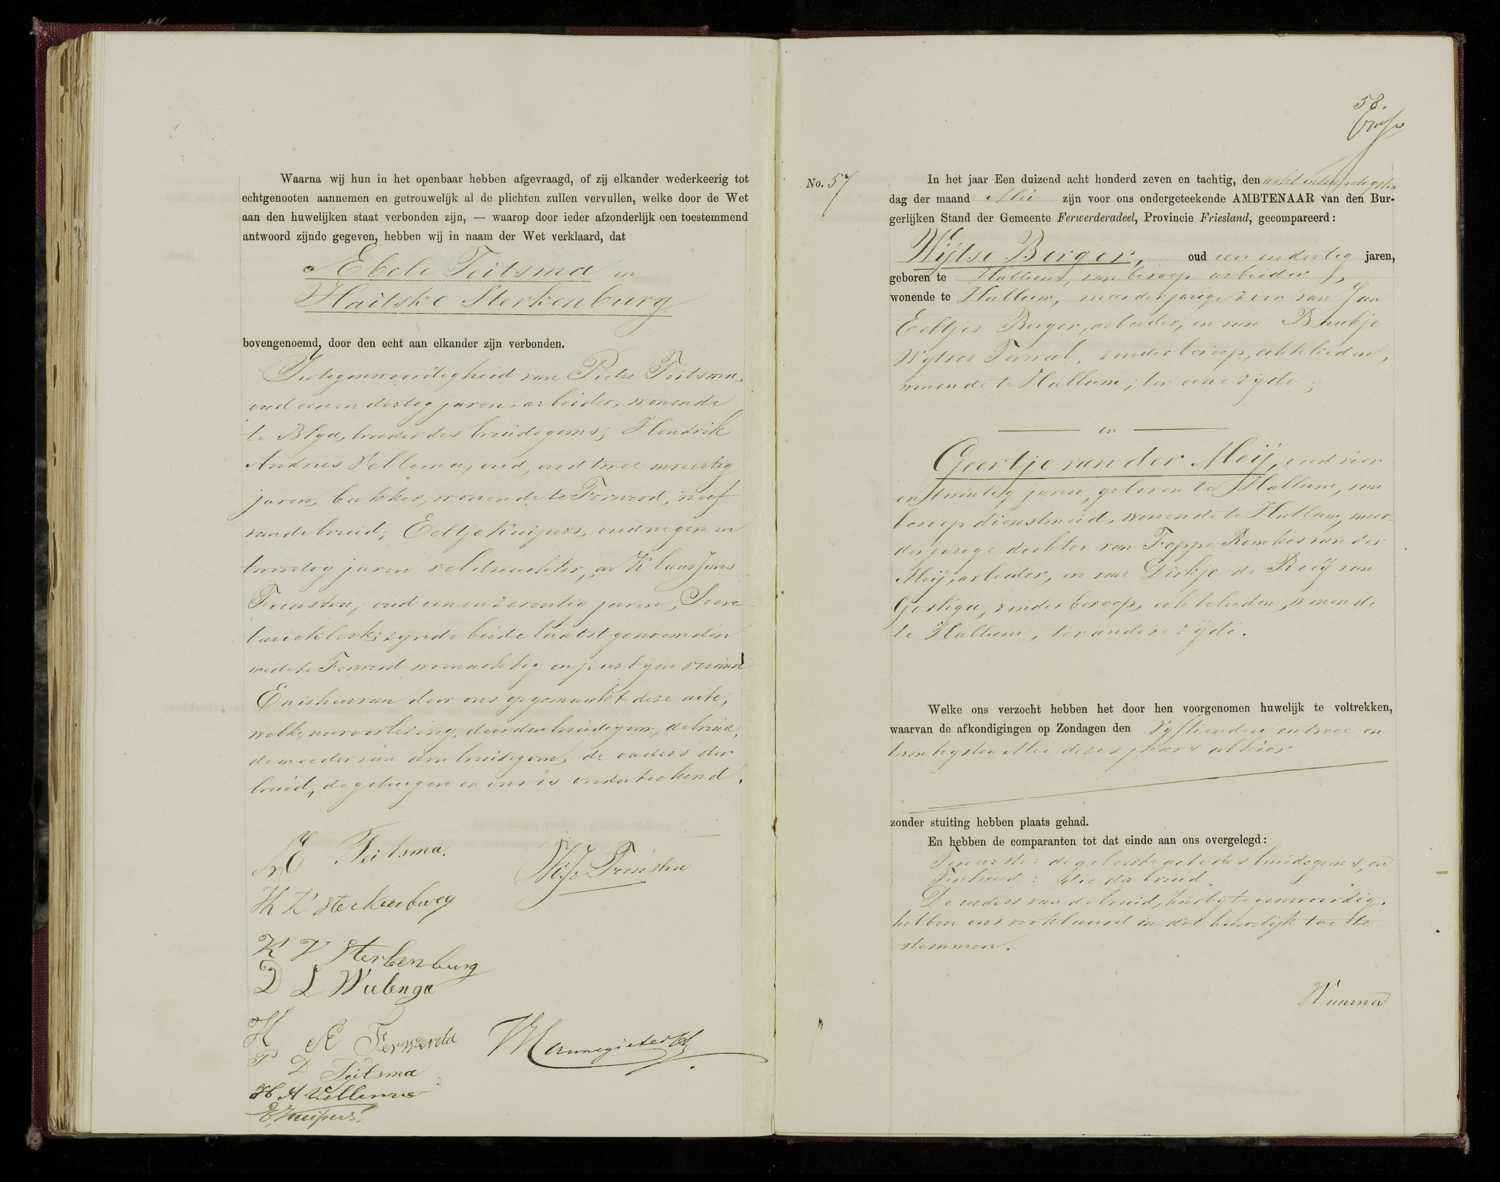 Waarna wij hun in het openbaar hebben afgevraagd, of zij elkander wederkeerig tot
echtgenooten aannemen en getrouwelijk al de plichten zullen vervullen, welke door de Wet
aan den huwelijken staat verbonden zijn, — waarop door ieder afzonderlijk een toestemmend
antwoord zijnde gegeven, hebben wij in naam der Wet verklaard, dat
Ebele Teitsma en
Haitske Sterkenburg
bovengenoemd, door den echt aan elkander zijn verbonden.
In tegenwoordigheid van Pieter Teitsma,
oud eenen dertig jaren, arbeider, wonende
te Blya, broeder des bruidegoms; Hendrik
Andries Vellema, oud, oud twee en veertig
jaren, bakker, wonende te Ferwerd, neef
van de bruid; Eeltje Kuipers, oud negen en
twintig jaren veldwachter, en Klaas Jans
Feenstra, oud een en zeventig jaren,
zynde beide laatstgenoemden
mede te Ferwerd woonachtig
En is hiervan door ons opgemaakt deze acte,
welke na voorlezing, door den bruidegom, de bruid,
de moeder van den bruidegom, de ouders der
bruid, de getuigen en ons is onderteekend.
E Teitsma.
H K Sterkenburg
K J Feenstra
K V Sterkenburg
D L Wielenga
H E Ferwerda
P D Teitsma
H A Vellema
E. Kuipers.
58.
No. 57
In het jaar Een duizend acht honderd zeven en tachtig, den acht en twintigsten
dag der maand Mei zijn voor ons ondergeteekende AMBTENAAR van den Bur-
gerlijken Stand der Gemeente Ferwerderadeel, Provincie Friesland, gecompareerd:
Wijtse Berger, oud een en dertig jaren,
geboren te Hallum, van beroep arbeider,
wonende te Hallum, meerderjarige zoon van Jan
Eeltjes Berger, arbeider, en van Baukje
Wytses Terwal, zonder beroep, echtelieden,
wonende te Hallum; ter eene zyde;
en
Geertje van der Meij, oud vier
en twintig jaren, geboren te Hallum, van
beroep dienstmeid, wonende te Hallum, meer-
derjarige dochter van Foppe Romkes van der
Meij, arbeider, en van Dirkje de Roij van
zonder beroep, echtelieden, wonende
te Hallum, ter andere zijde.
Welke ons verzocht hebben het door hen voorgenomen huwelijk te voltrekken,
waarvan de afkondigingen op Zondagen den Vyftienden en twee en
twintigsten Mei dezes jaars alhier
zonder stuiting hebben plaats gehad.
En hebben de comparanten tot dat einde aan ons overgelegd:
Ten eerste: de geboorteacte des bruidegoms, en
Ten tweede: die der bruid.
De ouders van de bruid, hierby tegenwoordig,
hebben ons verklaard in dit huwelijk toe te
stemmen.
Waarna